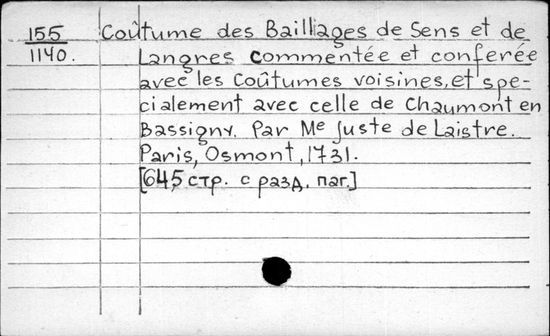 155 Coûtume des Bailliages de Sens et de
1140. Langres commentée et conferée
avec les Coûtumes voisines, et spe-
cialement avec celle de Chaumont en
Bassigny. Par Me Juste de Laistre.
Paris, Osmont, 1731.
[645 стр. с разд. паг.]